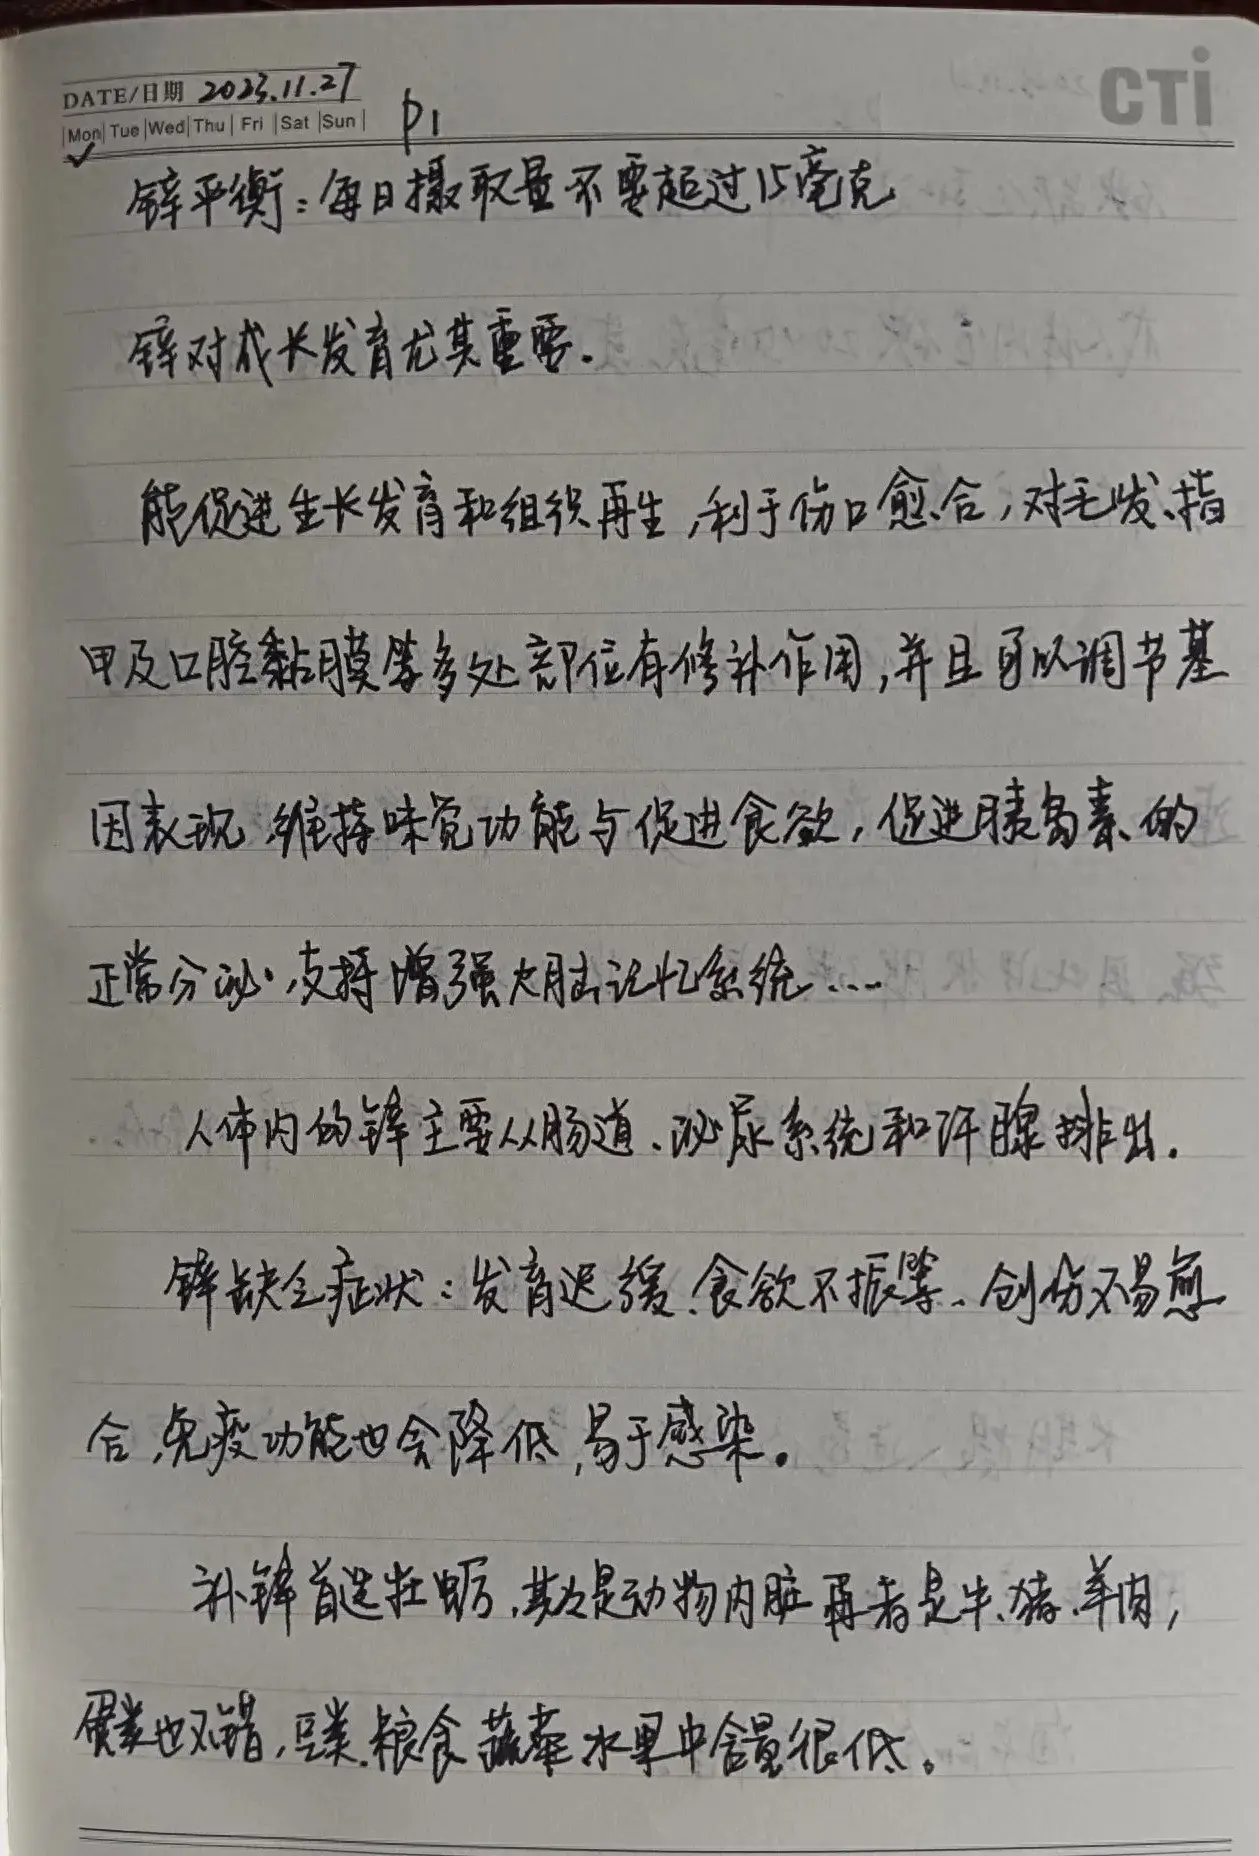 CTi
DATE/日期 2023.11.27
Mon Tue Wed Thu Fri Sat Sun P1
锌平衡：每日摄取量不要超过15毫克
锌对成长发育尤其重要.
能促进生长发育和组织再生，利于伤口愈合，对毛发、指
甲及口腔黏膜等多处部位有修补作用，并且可以调节基
因表现，维持味觉功能与促进食欲，促进胰岛素的
正常分泌，支持增强大脑记忆系统....
人体内的锌主要从肠道、泌尿系统和汗腺排出.
锌缺乏症状：发育迟缓、食欲不振等、创伤不易愈
合，免疫功能也会降低，易于感染。
补锌首选牡蛎，其次是动物内脏再者是牛、猪、羊肉，
蛋类也不错，豆类、粮食蔬菜水果中含量很低。